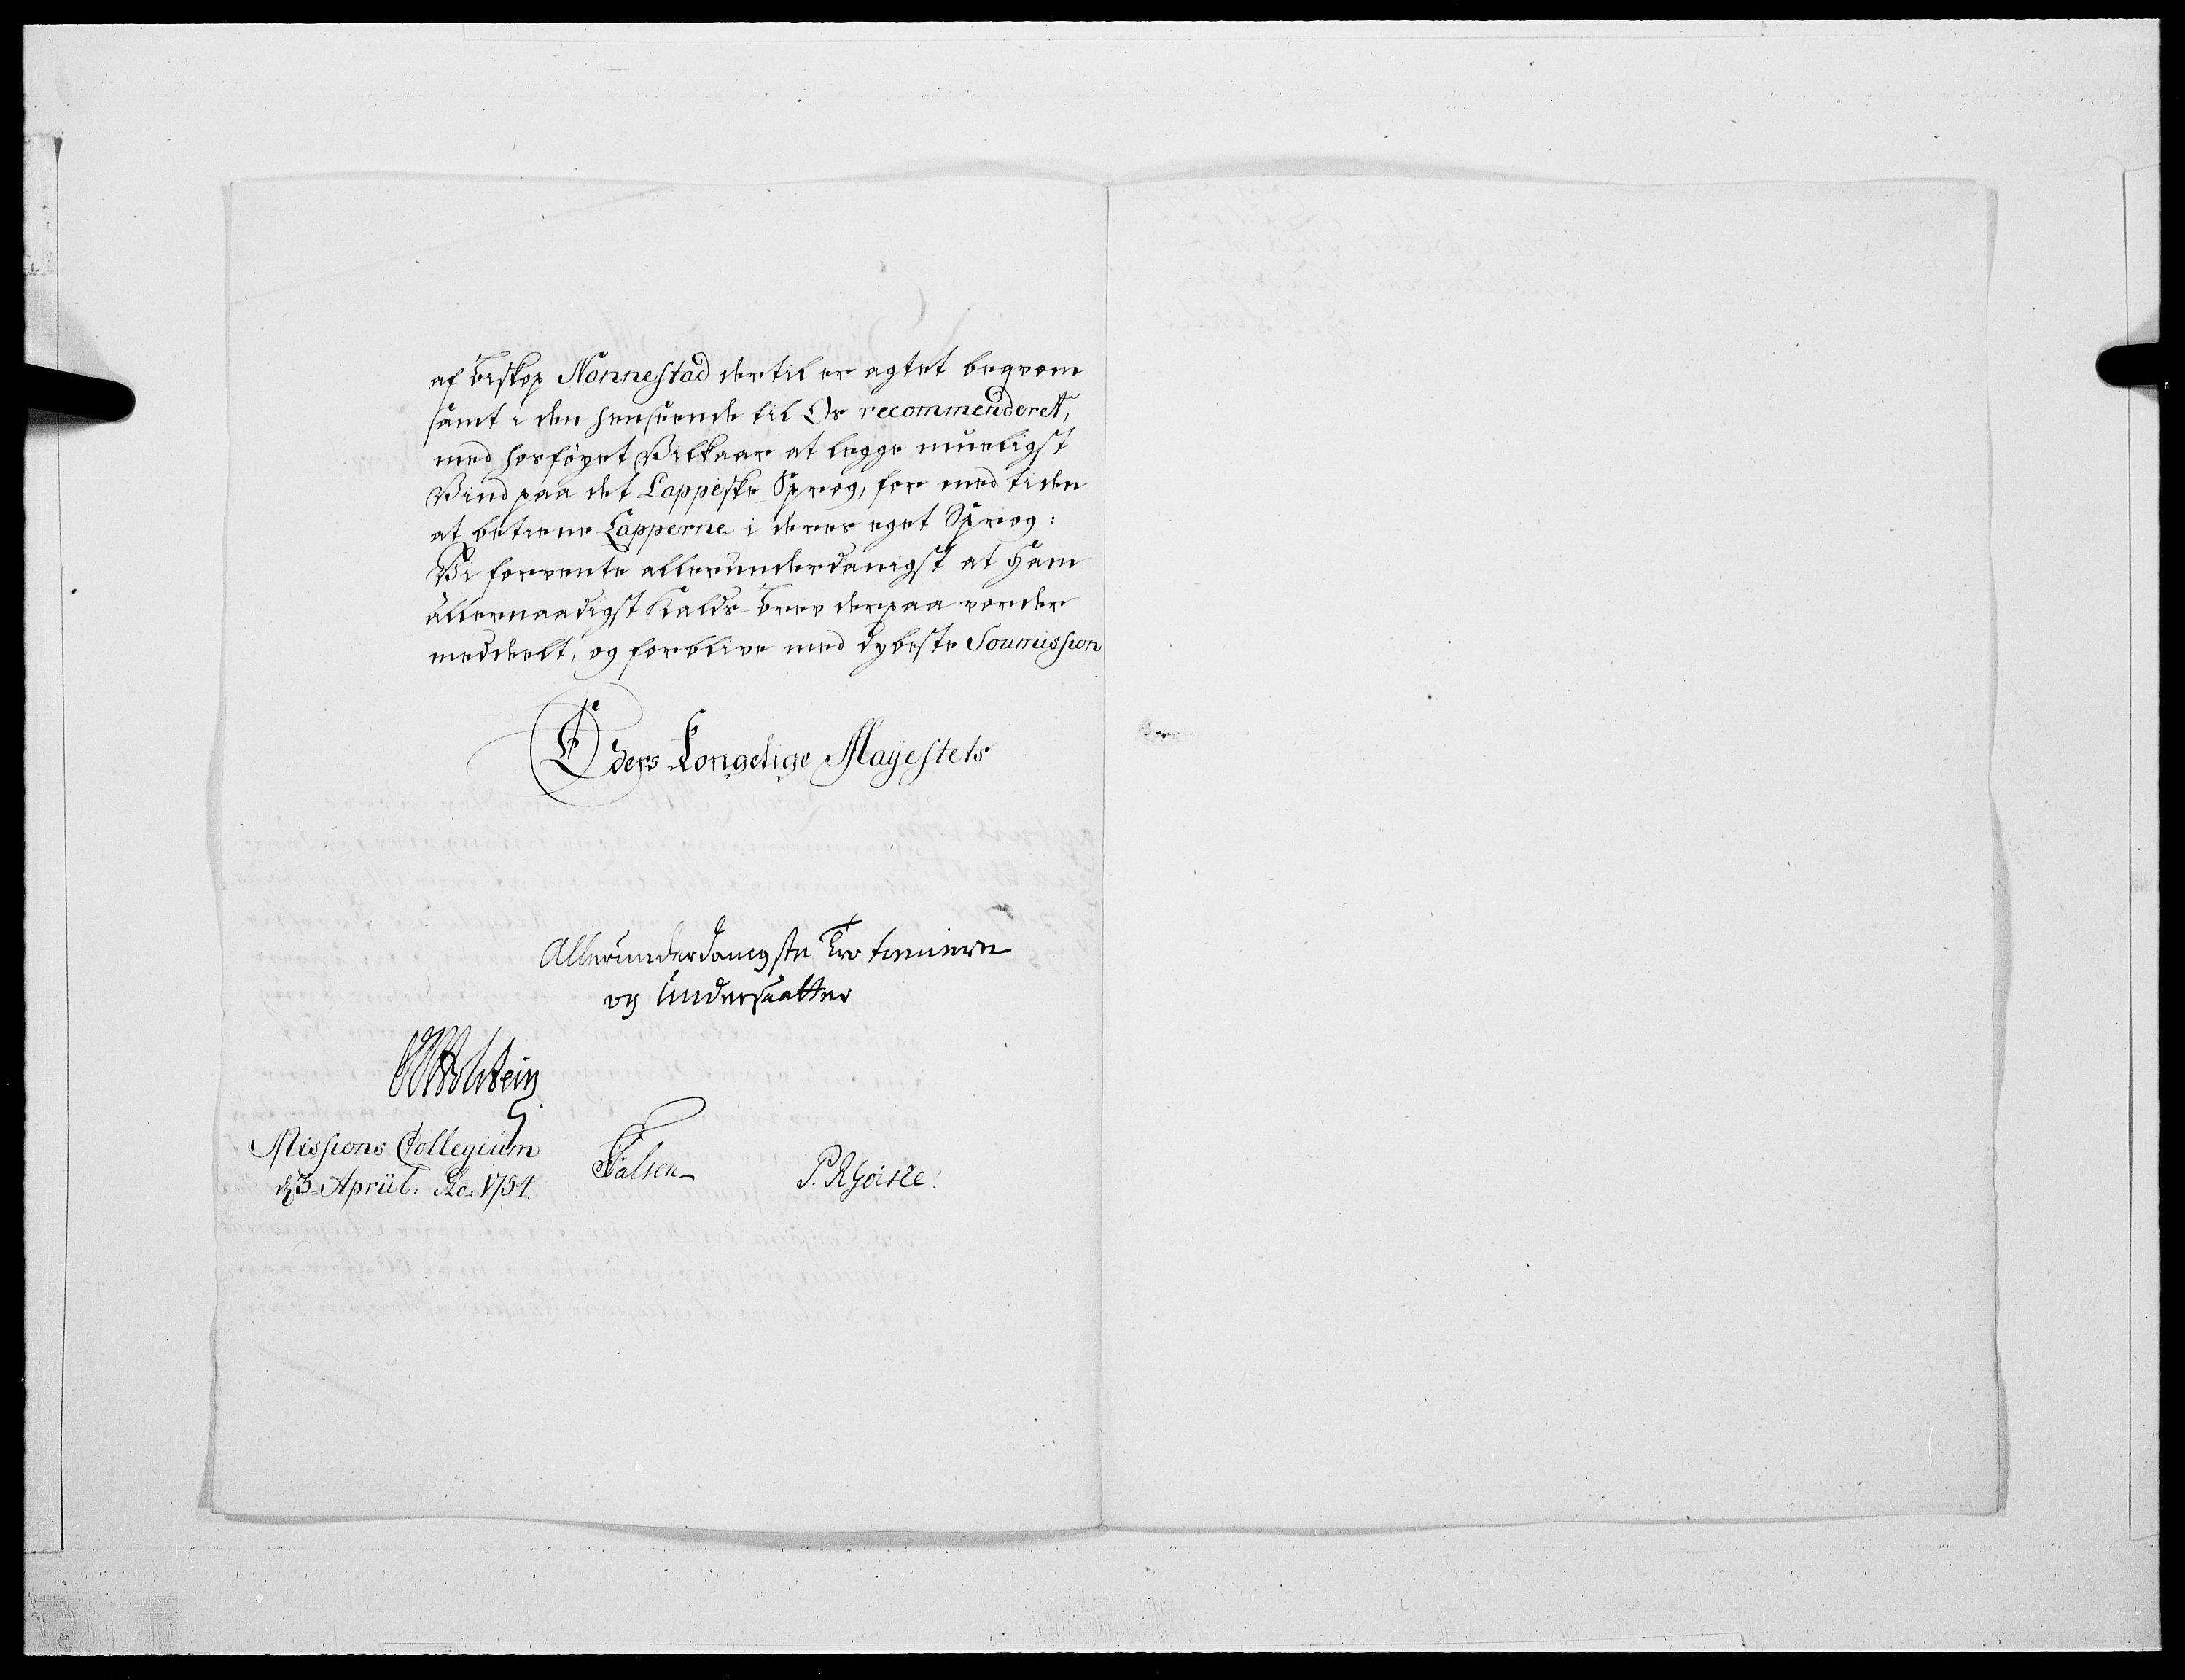 af Biskop Nannestad dertil er agtet beqvem
samt i den henseende til Os recommenderet,
med hosföyet Vilkaar at legge mueligst
Vind paa det Lappiske Sprog, for med tiden
at betiene Lapperne i deres eget Sprog:
Vi forvente allerunderdanigst at Ham
allernaadigst Kalds-Brev derpaa vorder
meddeelt, og forblive med dybeste Soumission
Eders Kongelige Mayestets
Allerunderdanigste Tro tienere
og Undersaatter
JLHolstein
Missions Collegium
d. 3 Apriil: Ao: 1754.
Falsen